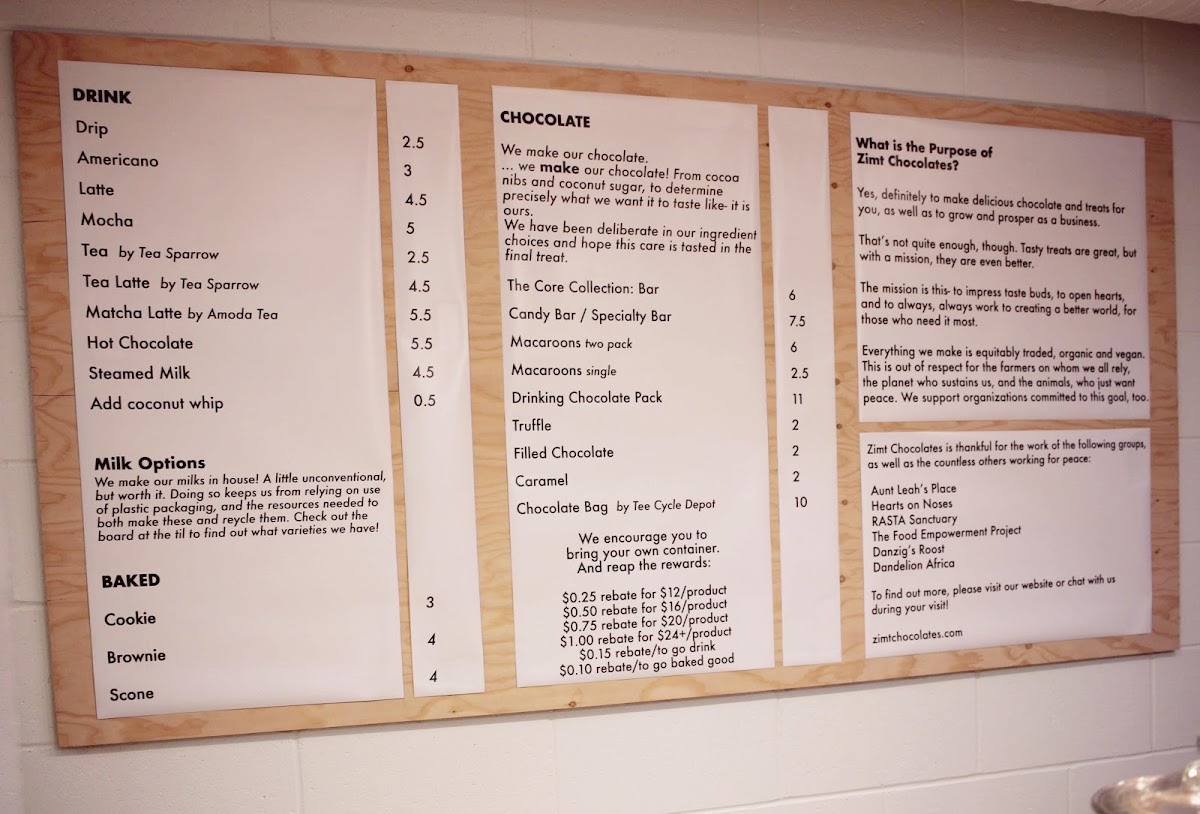 DRINK
Drip 2.5
Americano 3
Latte 4.5
Mocha 5
Tea by Tea Sparrow 2.5
Tea Latte by Tea Sparrow 4.5
Matcha Latte by Amoda Tea 5.5
Hot Chocolate 5.5
Steamed Milk 4.5
Add coconut whip 0.5
Milk Options
We make our milks in house! A little unconventional,
but worth it. Doing so keeps us from relying on use
of plastic packaging, and the resources needed to
both make these and reycle them. Check out the
board at the til to find out what varieties we have!
BAKED
Cookie 3
Brownie 4
Scone 4
CHOCOLATE
We make our chocolate.
... we make our chocolate! From cocoa
nibs and coconut sugar, to determine
precisely what we want it to taste like- it is
ours.
We have been deliberate in our ingredient
choices and hope this care is tasted in the
final treat.
The Core Collection: Bar 6
Candy Bar / Specialty Bar 7.5
Macaroons two pack 6
Macaroons single 2.5
Drinking Chocolate Pack 11
Truffle 2
Filled Chocolate 2
Caramel 2
Chocolate Bag by Tee Cycle Depot 10
We encourage you to
bring your own container.
And reap the rewards:
$0.25 rebate for $12/product
$0.50 rebate for $16/product
$0.75 rebate for $20/product
$1.00 rebate for $24+/product
$0.15 rebate/to go drink
$0.10 rebate/to go baked good
What is the Purpose of
Zimt Chocolates?
Yes, definitely to make delicious chocolate and treats for
you, as well as to grow and prosper as a business.
That's not quite enough, though. Tasty treats are great, but
with a mission, they are even better.
The mission is this- to impress taste buds, to open hearts,
and to always, always work to creating a better world, for
those who need it most.
Everything we make is equitably traded, organic and vegan.
This is out of respect for the farmers on whom we all rely,
the planet who sustains us, and the animals, who just want
peace. We support organizations committed to this goal, too.
Zimt Chocolates is thankful for the work of the following groups,
as well as the countless others working for peace:
Aunt Leah's Place
Hearts on Noses
RASTA Sanctuary
The Food Empowerment Project
Danzig's Roost
Dandelion Africa
To find out more, please visit our website or chat with us
during your visit!
zimtchocolates.com